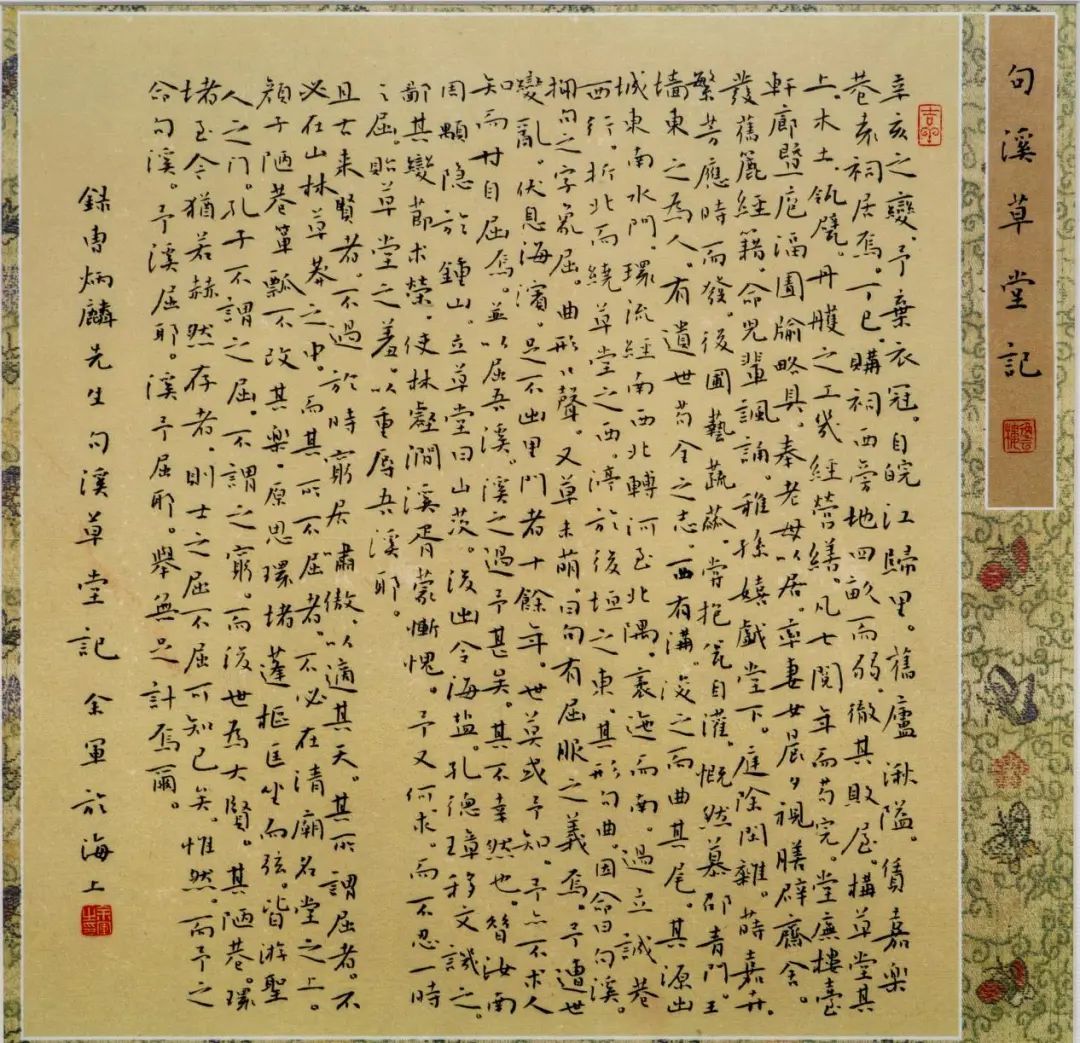 句溪草堂記
辛亥之變。予棄衣冠。自皖江歸里。舊廬湫隘。賃嘉樂
巷袁祠居焉。丁巳。購祠西旁地四畝而弱。徹其敗屋。構草堂其
上。木土。瓴甓。丹雘之工。幾經營繕。凡七閱年而苟完。堂廡樓臺
軒廊暨庖湢圊牏略具。奉老母以居。率妻女晨夕視膳。辟齋舍。
發舊簏經籍。命兒輩諷誦。稚孫嬉戲堂下。庭除閑雜。蒔嘉卉。
繁芳應時而發。後圃藝蔬蓏。嘗抱瓮自灌。慨然慕邵青門。王
墻東之為人。有遺世苟全之志。西有溝。浚之而曲其尾。其源出
城東南水門。環流經南西北轉河至北隅。裹迤而南。過立誠巷
西行。折北而繞草堂之西。渟於後垣之東。其形句曲。因命曰句溪。
句之字象屈。曲形丩聲。又草木萌。曰句有屈服之義焉。予遭世
變亂。伏息海濱。足不出里門者十餘年。世莫或予知。予亦不求人
知而甘自屈焉。並以屈吾溪。溪之過予甚矣。其不幸然也。昔汝南
周顒隱於鍾山。立草堂曰山茨。後出令海盐。孔德璋移文譏之。
鄙其變節求榮。使林礙澗溪胥蒙慚愧。予又何求。而不忍一時
之屈。貽草堂之羞。以重辱吾溪耶。
且士來賢者。不過於時窮居嘯傲。以適其天。其所謂屈者。不
必在山林草莽之中。而其所不屈者。不必在清廟名堂之上。
顏子陋巷簞瓢不改其樂。原思環堵蓬樞匡坐而弦。皆游聖
人之門。孔子不謂之屈。不謂之窮。而後世為大賢。其陋巷。環
堵至今猶若赫然存者。則士之屈不屈可知已矣。惟然。而予之
命句溪。予溪屈耶。溪予屈耶。舉無足計焉爾。
錄曹炳麟先生句溪草堂記 余軍於海上